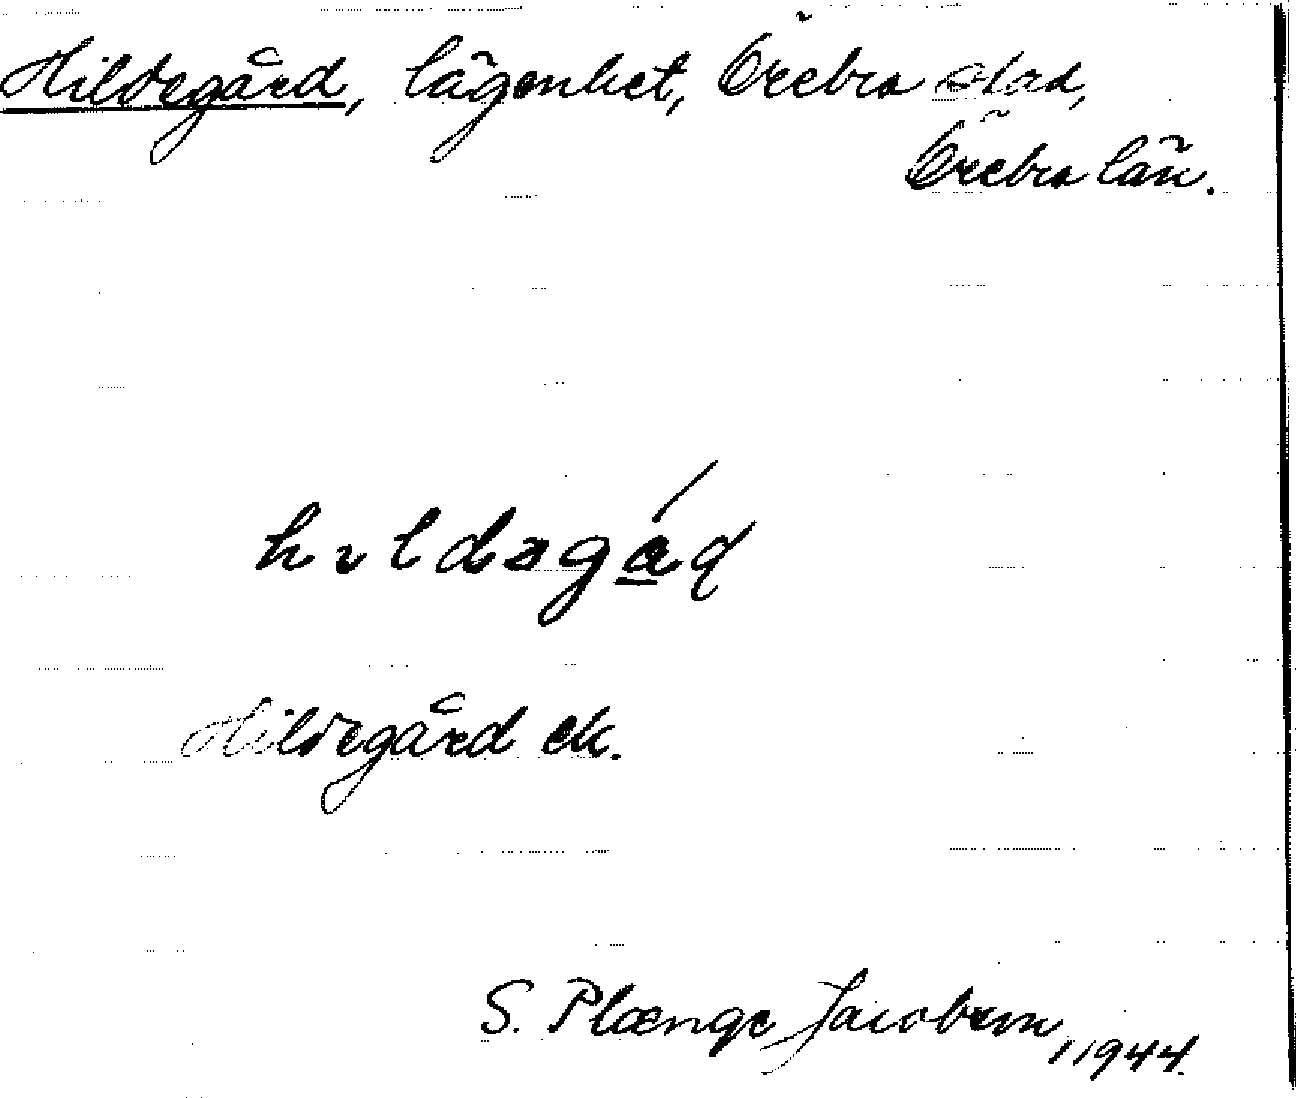 Hildegård, lägenhet, Örebro stad,
Örebro län.
hıldəgá̱ɖ
Hildegård ek.
S. Plænge Jacobsen, 1944.